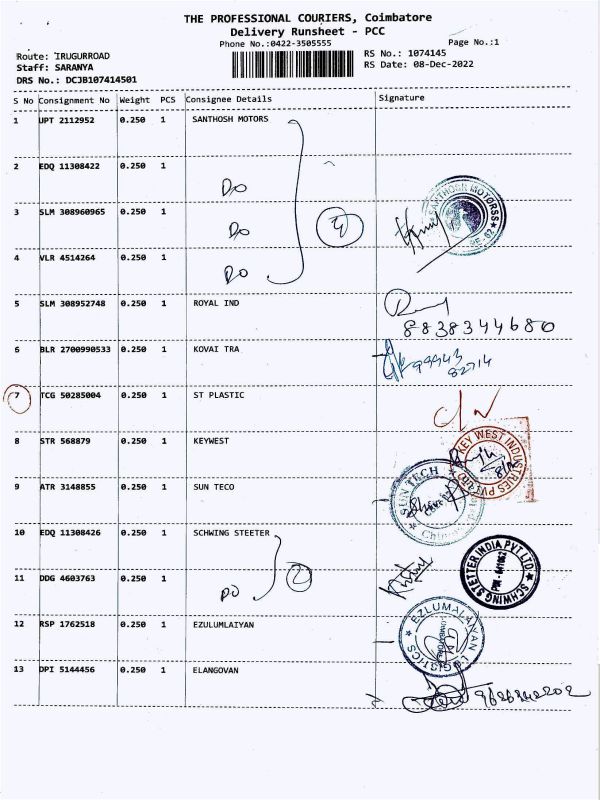 THE PROFESSIONAL COURIERS, Coimbatore
Delivery Runsheet - PCC
Phone No.:0422-3505555
Page No.:1
Route: IRUGURROAD
RS No.: 1074145
Staff: SARANYA
RS Date: 08-Dec-2022
DRS No.: DCJB107414501
S No Consignment No Weight PCS Consignee Details Signature
1 UPT 2112952 0.250 1 SANTHOSH MOTORS
2 EDQ 11308422 0.250 1
DO
3 SLM 308960965 0.250 1
DO
4
SANTHOSH MOTORSS
4 VLR 4514264 0.250 1
DO
5 SLM 308952748 0.250 1 ROYAL IND
8838344680
6 BLR 2700990533 0.250 1 KOVAI TRA
99943
82714
7 TCG 50285004 0.250 1 ST PLASTIC
8 STR 568879 0.250 1 KEYWEST
KEY WEST INDUSTRIES PVT LTD
9 ATR 3148855 0.250 1 SUN TECO
SUN TECH
10 EDQ 11308426 0.250 1 SCHWING STEETER
SCHWING STETTER INDIA PVT. LTD
11 DDG 4603763 0.250 1
DO
2
12 RSP 1762518 0.250 1 EZULUMLAIYAN
EZLUMALAIYAN LOGISTICS
13 DPI 5144456 0.250 1 ELANGOVAN
9626342202